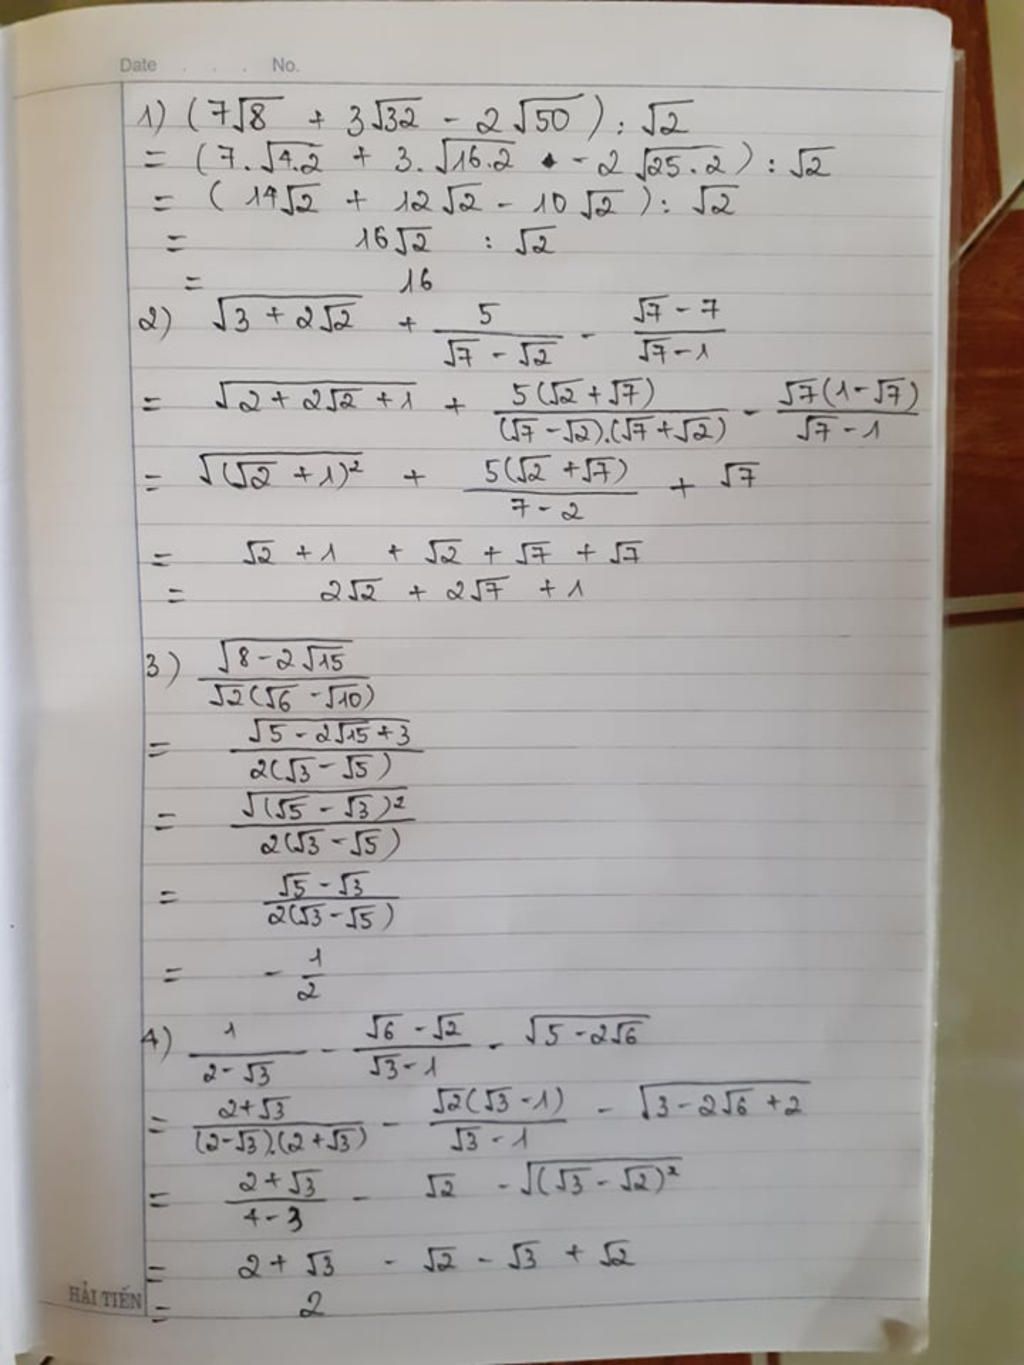 Date . . . No.
1) (7√8 + 3√32 - 2√50) : √2
= (7.√4.2 + 3.√16.2 - 2√25.2) : √2
= (14√2 + 12√2 - 10√2) : √2
= 16√2 : √2
= 16
2) √(3 + 2√2) + 5/(√7 - √2) - (√7 - 7)/(√7 - 1)
= √(2 + 2√2 + 1) + 5(√2 + √7)/((√7 - √2).(√7 + √2)) - √7(1 - √7)/(√7 - 1)
= √((√2 + 1)²) + 5(√2 + √7)/(7 - 2) + √7
= √2 + 1 + √2 + √7 + √7
= 2√2 + 2√7 + 1
3) √(8 - 2√15)/(√2(√6 - √10))
= √(5 - 2√15 + 3)/(2(√3 - √5))
= √((√5 - √3)²)/(2(√3 - √5))
= (√5 - √3)/(2(√3 - √5))
= - 1/2
4) 1/(2 - √3) - (√6 - √2)/(√3 - 1) - √(5 - 2√6)
= (2 + √3)/((2 - √3).(2 + √3)) - √2(√3 - 1)/(√3 - 1) - √(3 - 2√6 + 2)
= (2 + √3)/(4 - 3) - √2 - √((√3 - √2)²)
= 2 + √3 - √2 - √3 + √2
= 2
HẢI TIẾN